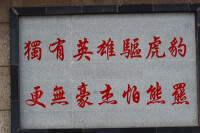 獨有英雄驅虎豹
更無豪杰怕熊羆